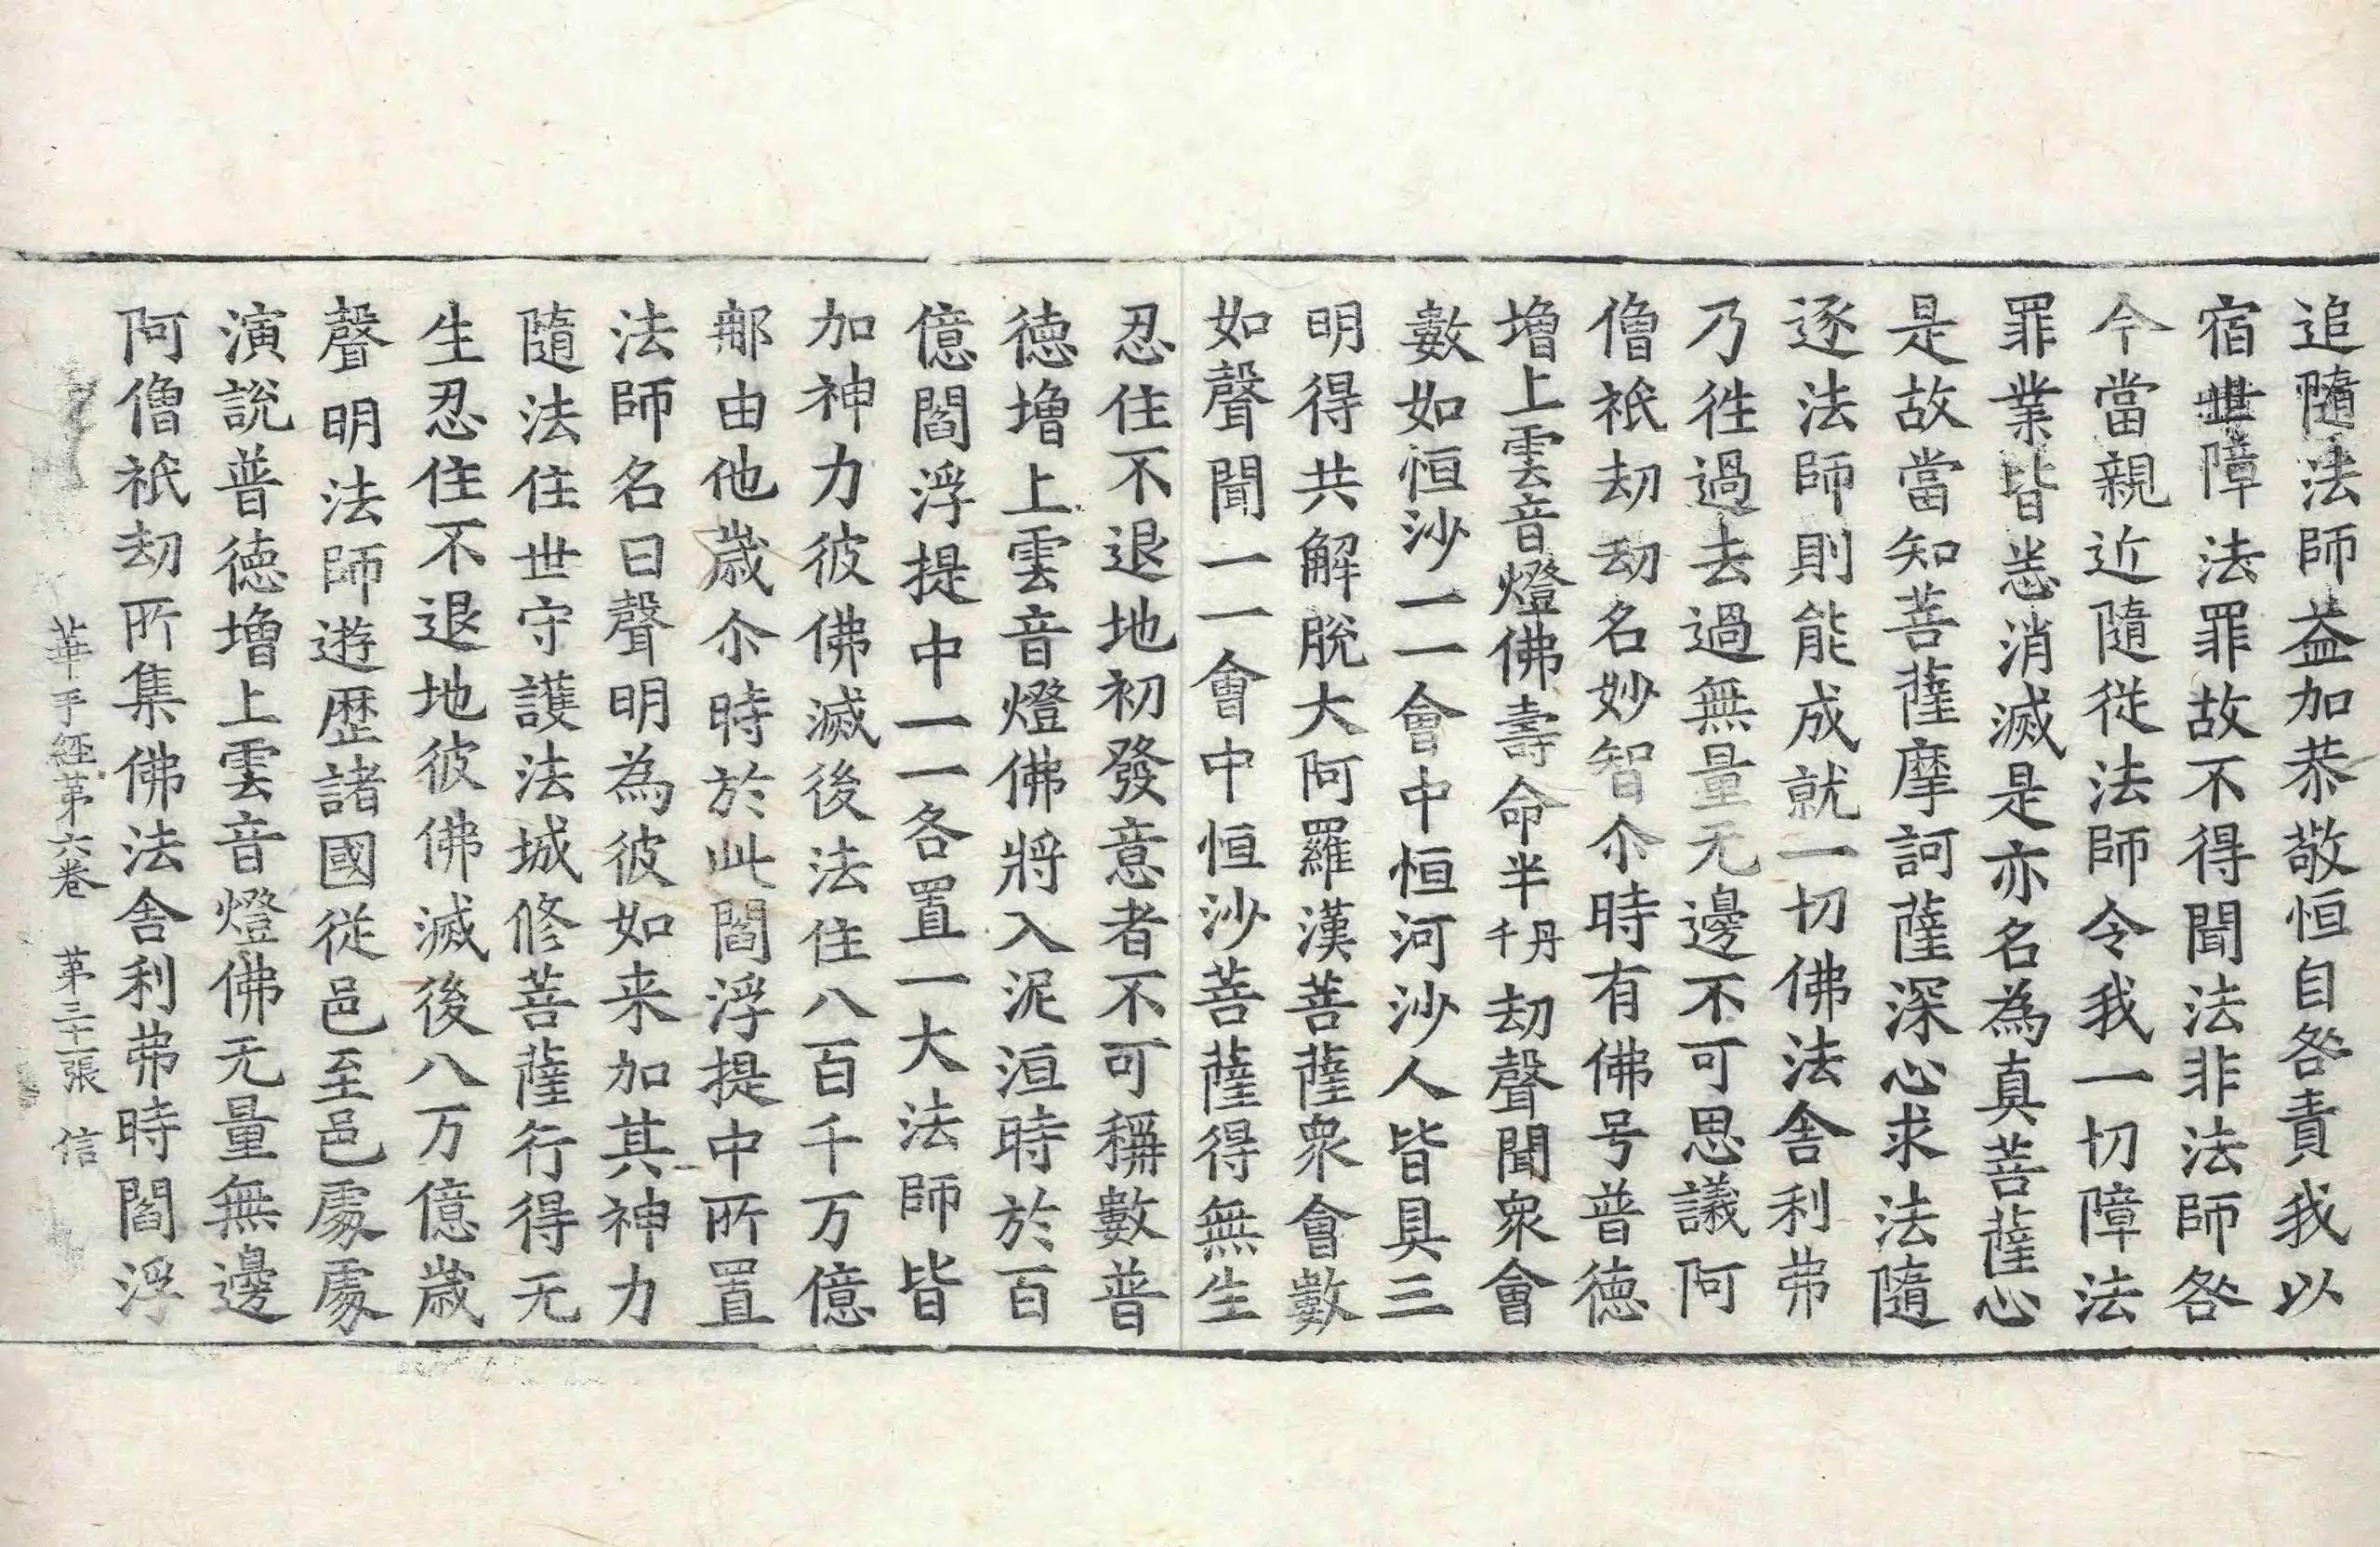 追隨法師益加恭敬恒自咎責我以
宿世障法罪故不得聞法非法師咎
今當親近隨從法師令我一切障法
罪業皆悉消滅是亦名為真菩薩心
是故當知菩薩摩訶薩深心求法隨
逐法師則能成就一切佛法舍利弗
乃徃過去過無量无邊不可思議阿
僧祇劫劫名妙智尒時有佛号普德
增上雲音燈佛壽命半千丹劫聲聞眾會
數如恒沙一一會中恒河沙人皆具三
明得共解脫大阿羅漢菩薩眾會數
如聲聞一一會中恒沙菩薩得無生
忍住不退地初發意者不可稱數普
德增上雲音燈佛將入泥洹時於百
億閻浮提中一一各置一大法師皆
加神力彼佛滅後法住八百千万億
那由他歲尒時於此閻浮提中所置
法師名曰聲明為彼如来加其神力
隨法住世守護法城修菩薩行得无
生忍住不退地彼佛滅後八万億歲
聲明法師遊歷諸國從邑至邑處處
演說普德增上雲音燈佛无量無邊
阿僧祇劫所集佛法舍利弗時閻浮
華手經第六卷 第三十一張 信